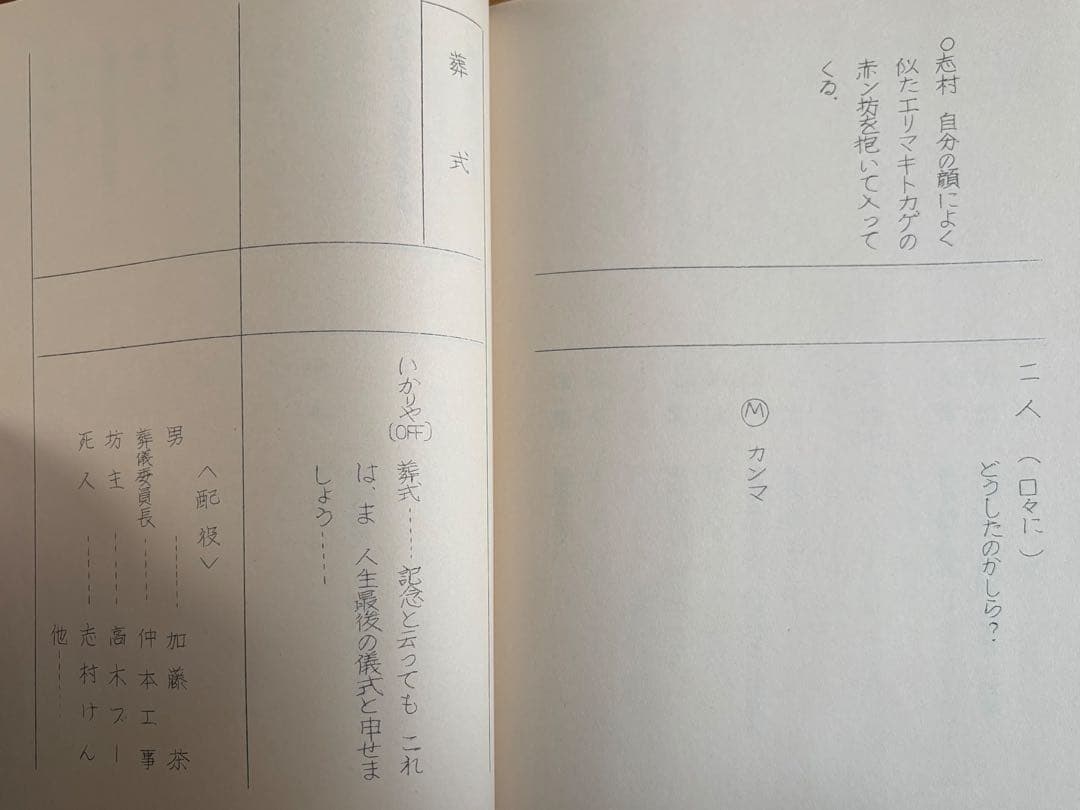 ○志村　自分の顔によく
似たエリマキトカゲの
赤ン坊を抱いて入って
くる.
二人　(口々に)
どうしたのかしら？
Ⓜ　カンマ
葬式
いかりや(OFF)　葬式……記念と云っても　これ
は、ま　人生最後の儀式と申せま
しょう……
＜配役＞
男……加藤　茶
葬儀委員長……仲本工事
坊主……高木ブー
死人……志村けん
他……